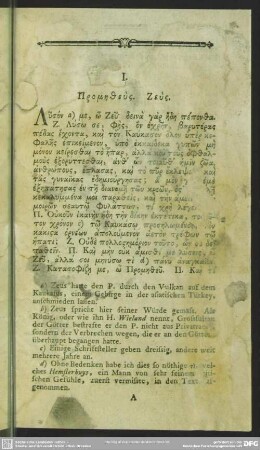 I.
Προμηθεύς. Ζεύς.
Λῦσόν a) με, ὦ Ζεῦ· δεινὰ γὰρ ἤδη πέπονθα.
Ζ. Λύσω σέ, φῄς, ὃν ἐχρῆν, βαρυτέρας
πέδας ἔχοντα, καὶ τὸν Καύκασον ὅλον ὑπὲρ κε-
φαλῆς ἐπικείμενον, ὑπὸ ἑκκαίδεκα γυπῶν μὴ
μόνον κείρεσθαι τὸ ἧπαρ, ἀλλὰ καὶ τοὺς ὀφθαλ-
μοὺς ἐξορύττεσθαι, ἀνθ' ὧν τοιαῦθ' ἡμῖν ζῶα
ἀνθρώπους, ἔπλασας, καὶ τὸ πῦρ ἔκλεψας, καὶ
τὰς γυναῖκας ἐδημιούργησας; ἃ μὲν γὰρ ἐμὲ
ἐξηπάτησας ἐν τῇ διανομῇ τῶν κρεῶν, ὀστᾶ
κεκαλυμμένα μοι παραθεὶς, καὶ τὴν ἀμείνω
μοιρῶν σεαυτῷ φυλάττων, τί χρὴ λέγειν;
Π. Οὔκουν ἱκανὴν ἤδη τὴν δίκην ἐκτέτικα, το
τον χρόνον c) τῷ Καυκάσῳ προσηλωμένος,
κάκιστα ὀρνέων ἀπολούμενον ἀετὸν τρέφων τῷ
ἥπατι; Ζ. Οὐδὲ πολλοστημόριον τοῦτο, ὧν σε δεῖ
παθεῖν. Π. Καὶ μὴν οὐκ ἀμισθί με λύσεις, ὦ
Ζεῦ, ἀλλά σοι μηνύσω τι d) πάνυ ἀναγκαῖον.
Ζ. Κατασοφίζῃ με, ὦ Προμηθεῦ. Π. Καὶ τί
a) Zeus hatte den P. durch den Volkan auf dem
Kaukasus, einem Gebirge in der asiatischen Türkey,
anschmieden lassen.
b) Zeus spricht hier seiner Würde gemäss. Als
König, oder wie ihn H. Wieland nennt, Grossfultan
der Götter bestrafte er den P. nicht aus Privatrache,
sondern der Verbrechen wegen, die er an den Göttern
überhaupt begangen hatte.
c) Einige Schriftsteller geben dreissig, andere weit
mehrere Jahre an.
d) Ohne Bedenken habe ich dies so nöthige
ches Hemsterhuys, ein Mann von sehr feinem
schen Gefühle, zuerst vermisste, in den Text
genommen.
A